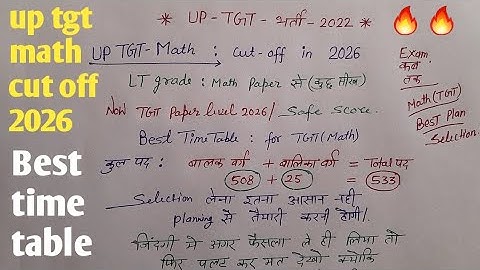 up tgt
math
cut off
2026
Best
time
table
* UP - TGT - भर्ती - 2022 *
UP TGT - Math : cut-off in 2026
LT grade : Math Paper से (कुछ सीख)
Now TGT Paper level 2026/ Safe Score..
Best TimeTable : for TGT (Math)
कुल पद : बालक वर्ग + बालिका वर्ग = Total पद
508 + 25 = 533
Selection लेना इतना आसान नही
planning से तैयारी करनी होगी/.
जिंदगी मे अगर फैसला ले ही लिया तो
फिर पलट कर मत देखो क्योंकि
Exam
कब
तक
Math (TGT)
BEST Plan
Selection